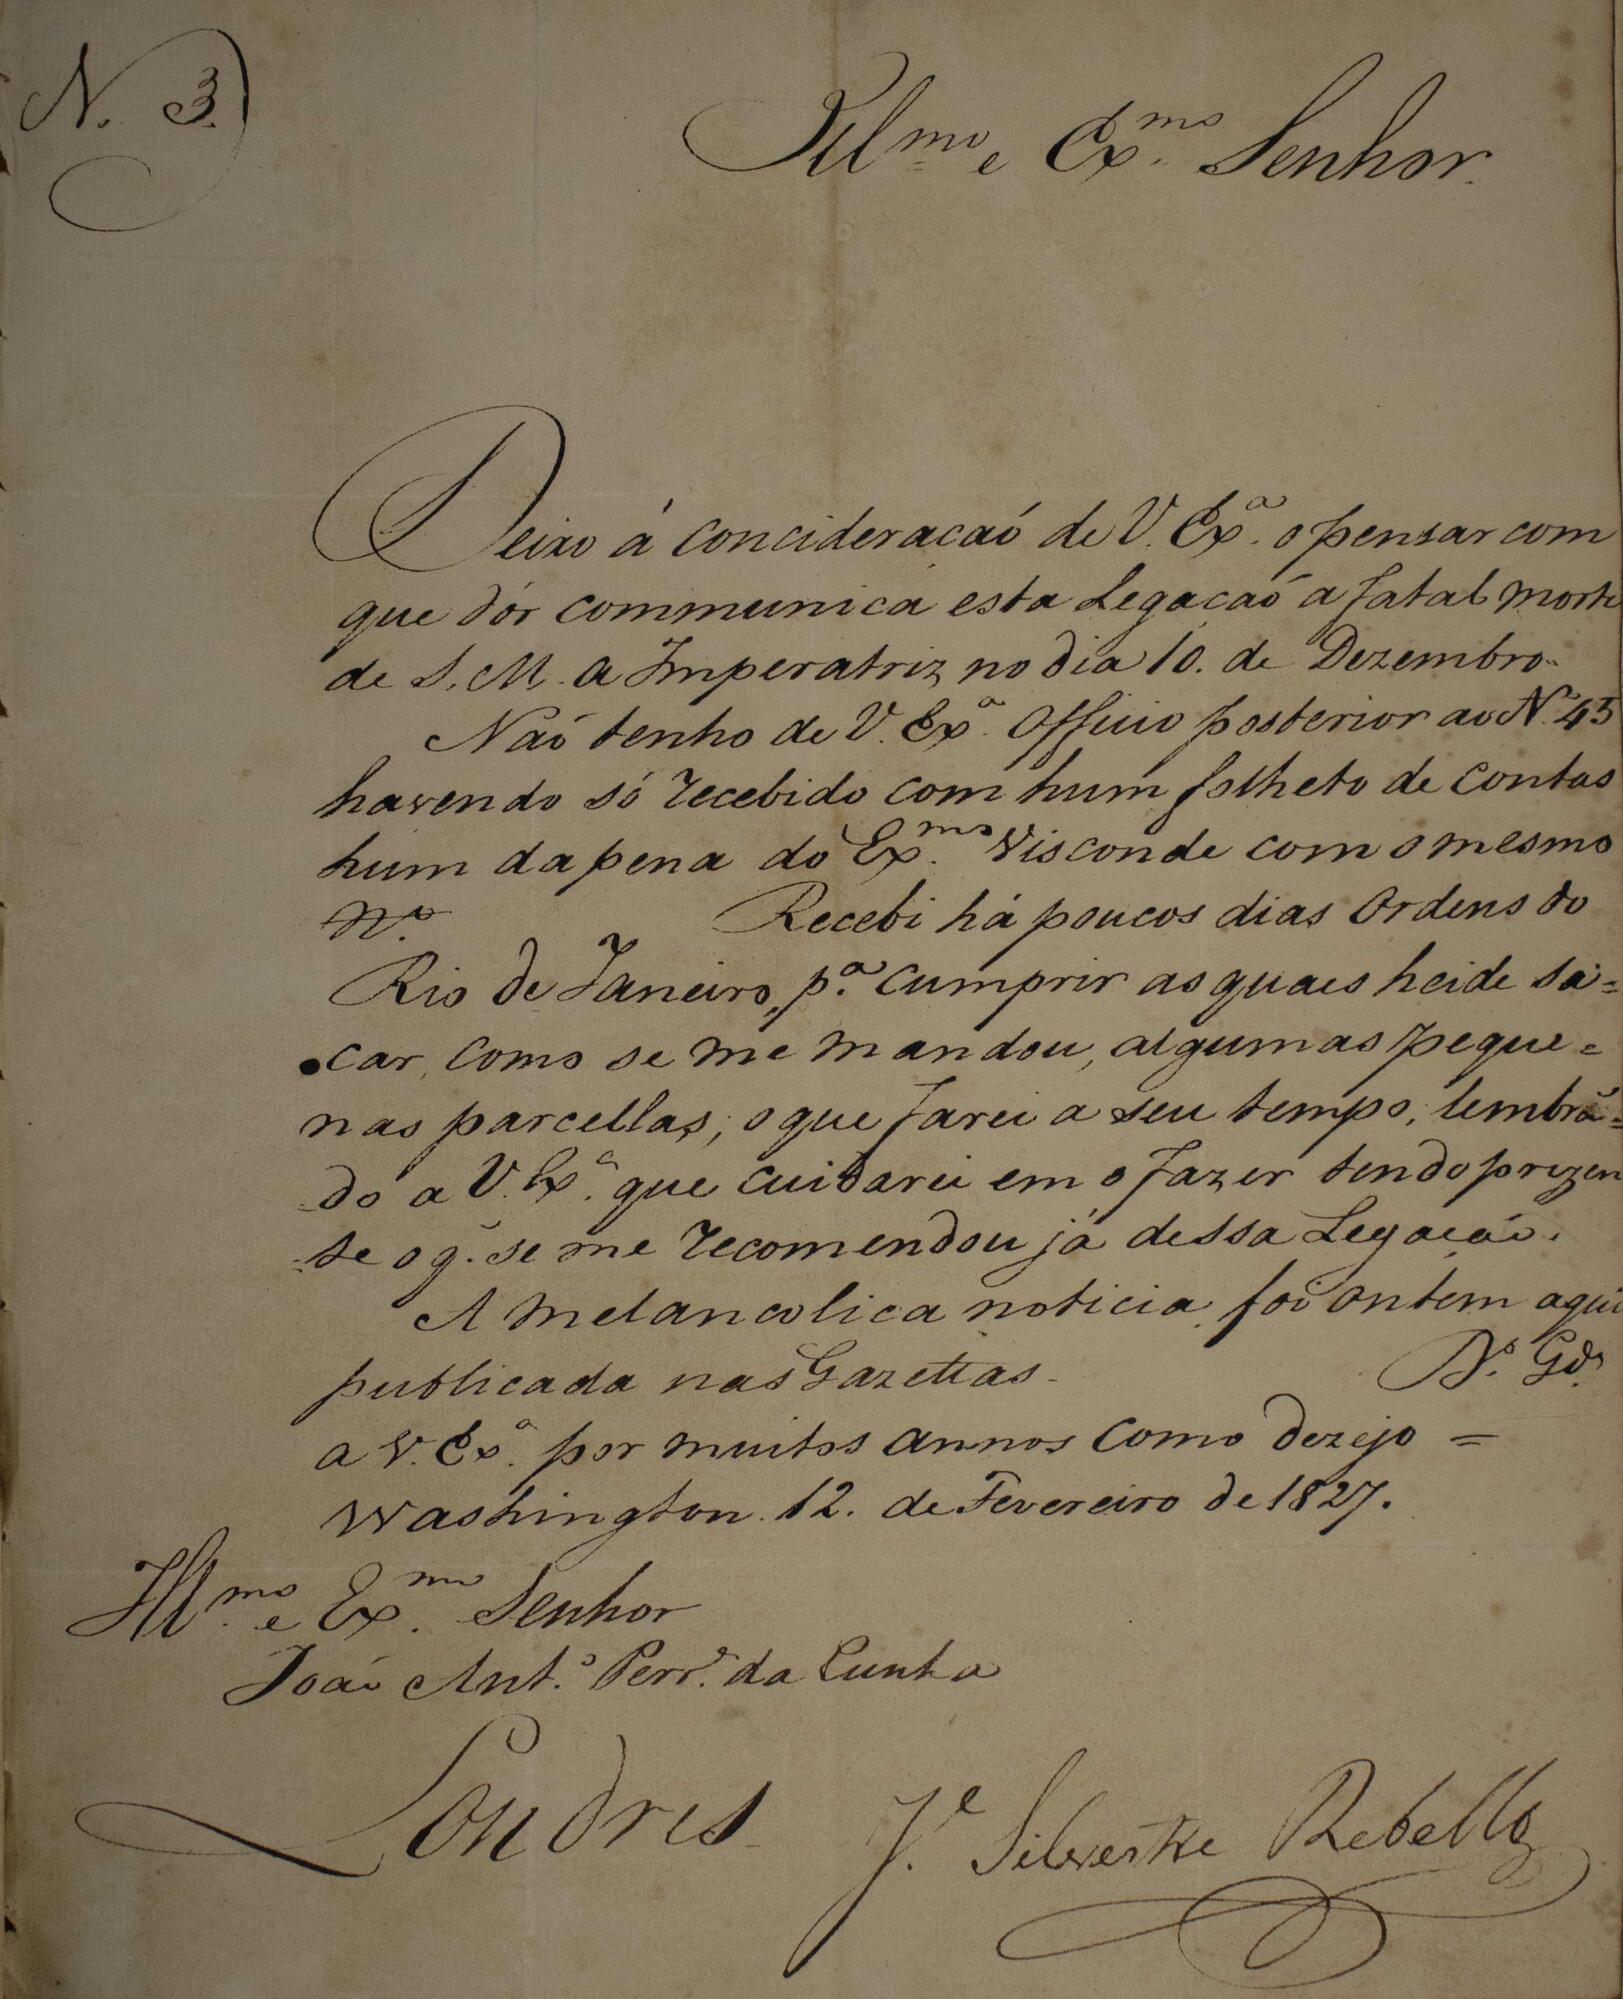 N. 3.
Illmo e Exmo Senhor.
Deixo á concideracaó de V. Exa. o pensar com
que dór communica esta Legaçaó a fatal morte
de S. M. a Imperatriz no dia 10. de Dezembro.
Naó tenho de V. Exa. Officio posterior ao N. 45
havendo só recebido com hum folheto de contas
hum da pena do Exmo. Visconde com o mesmo
No. Recebi há poucos dias Ordens do
Rio de Janeiro, pa. cumprir as quaes heide sa=
car, como se me mandou, algumas peque=
nas parcellas, o que farei a seu tempo, lembrã=
=do a V. Exa. que cuidarei em o fazer tendo prezen
=te o q. se me recomendou já dessa Legação.
A melancolica noticia foi ontem aqui
publicada nas Gazettas. Ds. Gde
a V. Exa. por muitos annos como dezejo =
Washington 12. de Fevereiro de 1827.
Illmo. e Exmo. Senhor
Joaó Anto. Perra. da Cunha
Londres
Je. Silvestre Rebello